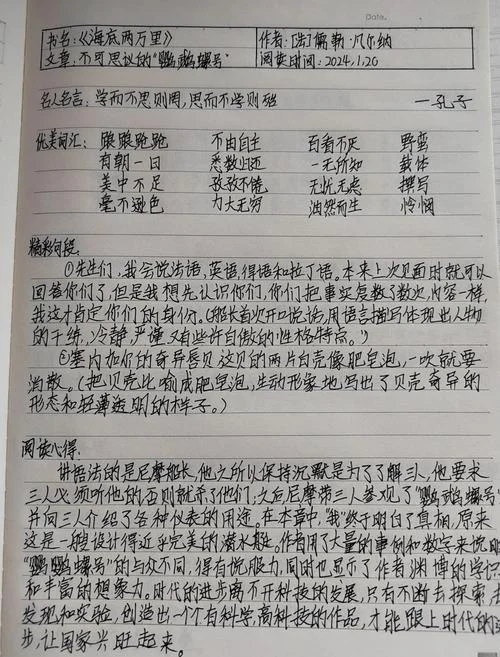 Date.
书名:《海底两万里》 作者:[法]儒勒·凡尔纳
文章:不可思议的"鹦鹉螺号" 阅读时间:2024.1.20
名人名言:学而不思则罔,思而不学则殆 —孔子
优美词汇: 踉踉跄跄 不由自主 百看不厌 野蛮
有朝一日 悉数归还 一无所知 载体
美中不足 孜孜不倦 无忧无虑 撰写
毫不逊色 力大无穷 油然而生 怜悯
精彩句段:
①先生们,我会说法语,英语,得语和拉丁语。本来上次见面时就可以
回答你们了,但是我想先认识你们,你们把事实复数了数次,内容一样,
我这才肯定你们的身份。(船长首次开口说话,用语言描写体现出人物
的干练,冷静,严谨又有些许自傲的性格特点。)
②塞内加尔的奇异唇贝这贝的两片白壳像肥皂泡,一吹就要
消散。(把贝壳比喻成肥皂泡,生动形象地写出了贝壳奇异的
形态和轻薄透明的样子。)
阅读心得:
讲语法的是尼摩船长,他之所以保持沉默是为了了解三人,他要求
三人必须听他的否则就杀了他们,之后尼摩带三人参观了"鹦鹉螺号"
并向三人介绍了各种仪表的用途。在本章中,"我"终于明白了真相,原来
这是一艘设计得近乎完美的潜水艇。作者用了大量的事例和数字来说明
"鹦鹉螺号"的与众不同,得有说服力,同时也显示了作者渊博的学识
和丰富的想象力。时代的进步离不开科技的发展,只有不断去探索,去
发现和实验,创造出一个个有科学,高科技的作品,才能跟上时代的
步,让国家兴旺起来。